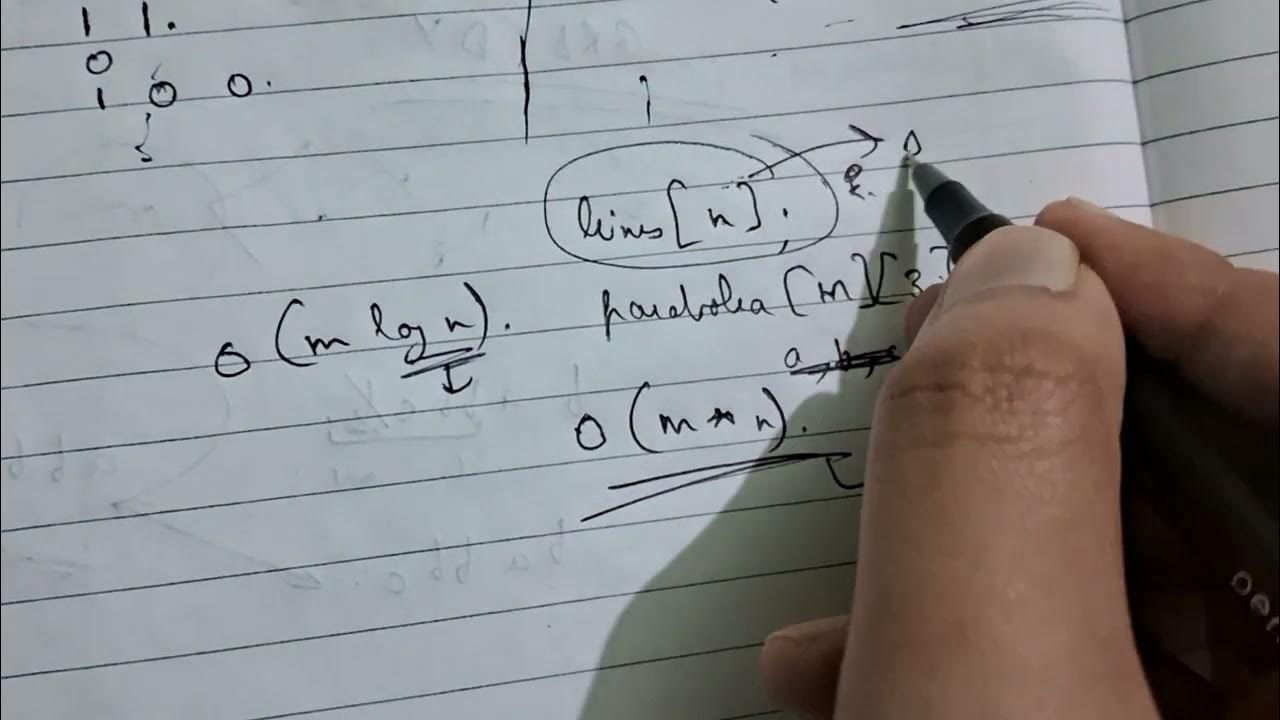 1 1.
0
1 0 0.
1
lines[n];
parabola[m][3
O(m log n).
a, b, c
O(m * n).